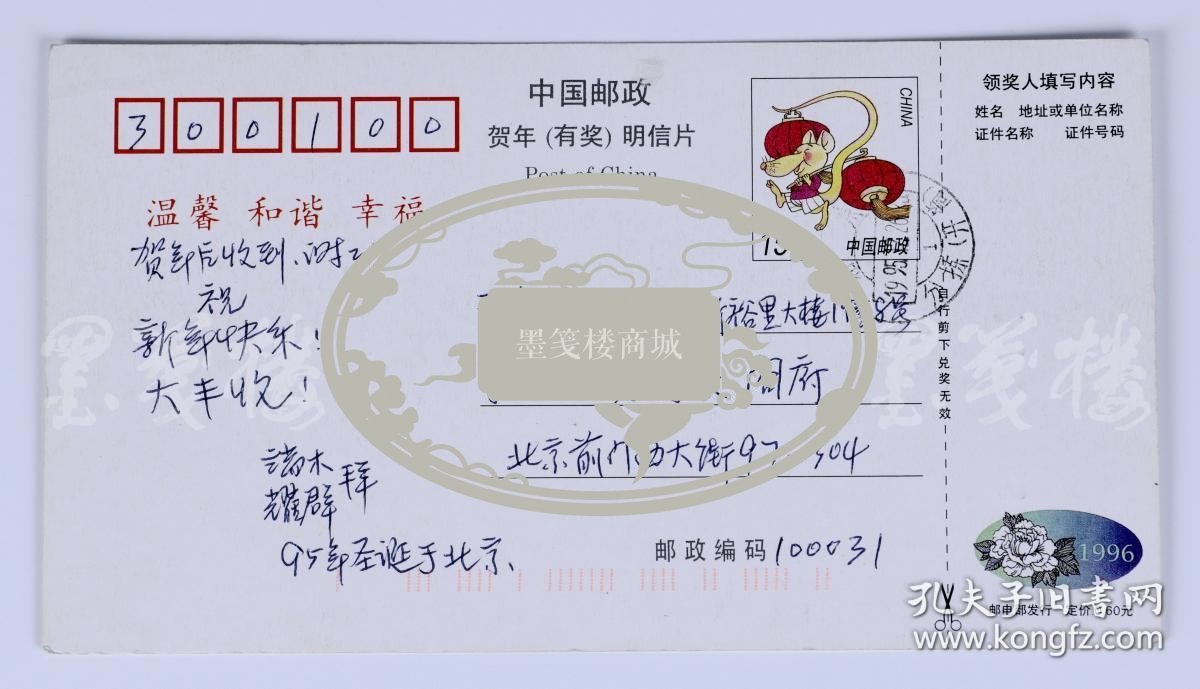 300100
中国邮政
贺年 (有奖) 明信片
Post of China
CHINA
中国邮政
领奖人填写内容
姓名 地址或单位名称
证件名称 证件号码
温馨 和谐 幸福
贺年片收到、谢
祝
新年快乐!
大丰收!
端木
耀群 拜
95年圣诞于北京、
裕里大楼
阖府
北京前门西大街97 304
邮政编码 100031
自行剪下兑奖无效
1996
邮电部发行 定价:1.60元
墨笺楼商城
墨笺楼
孔夫子旧书网
www.kongfz.com